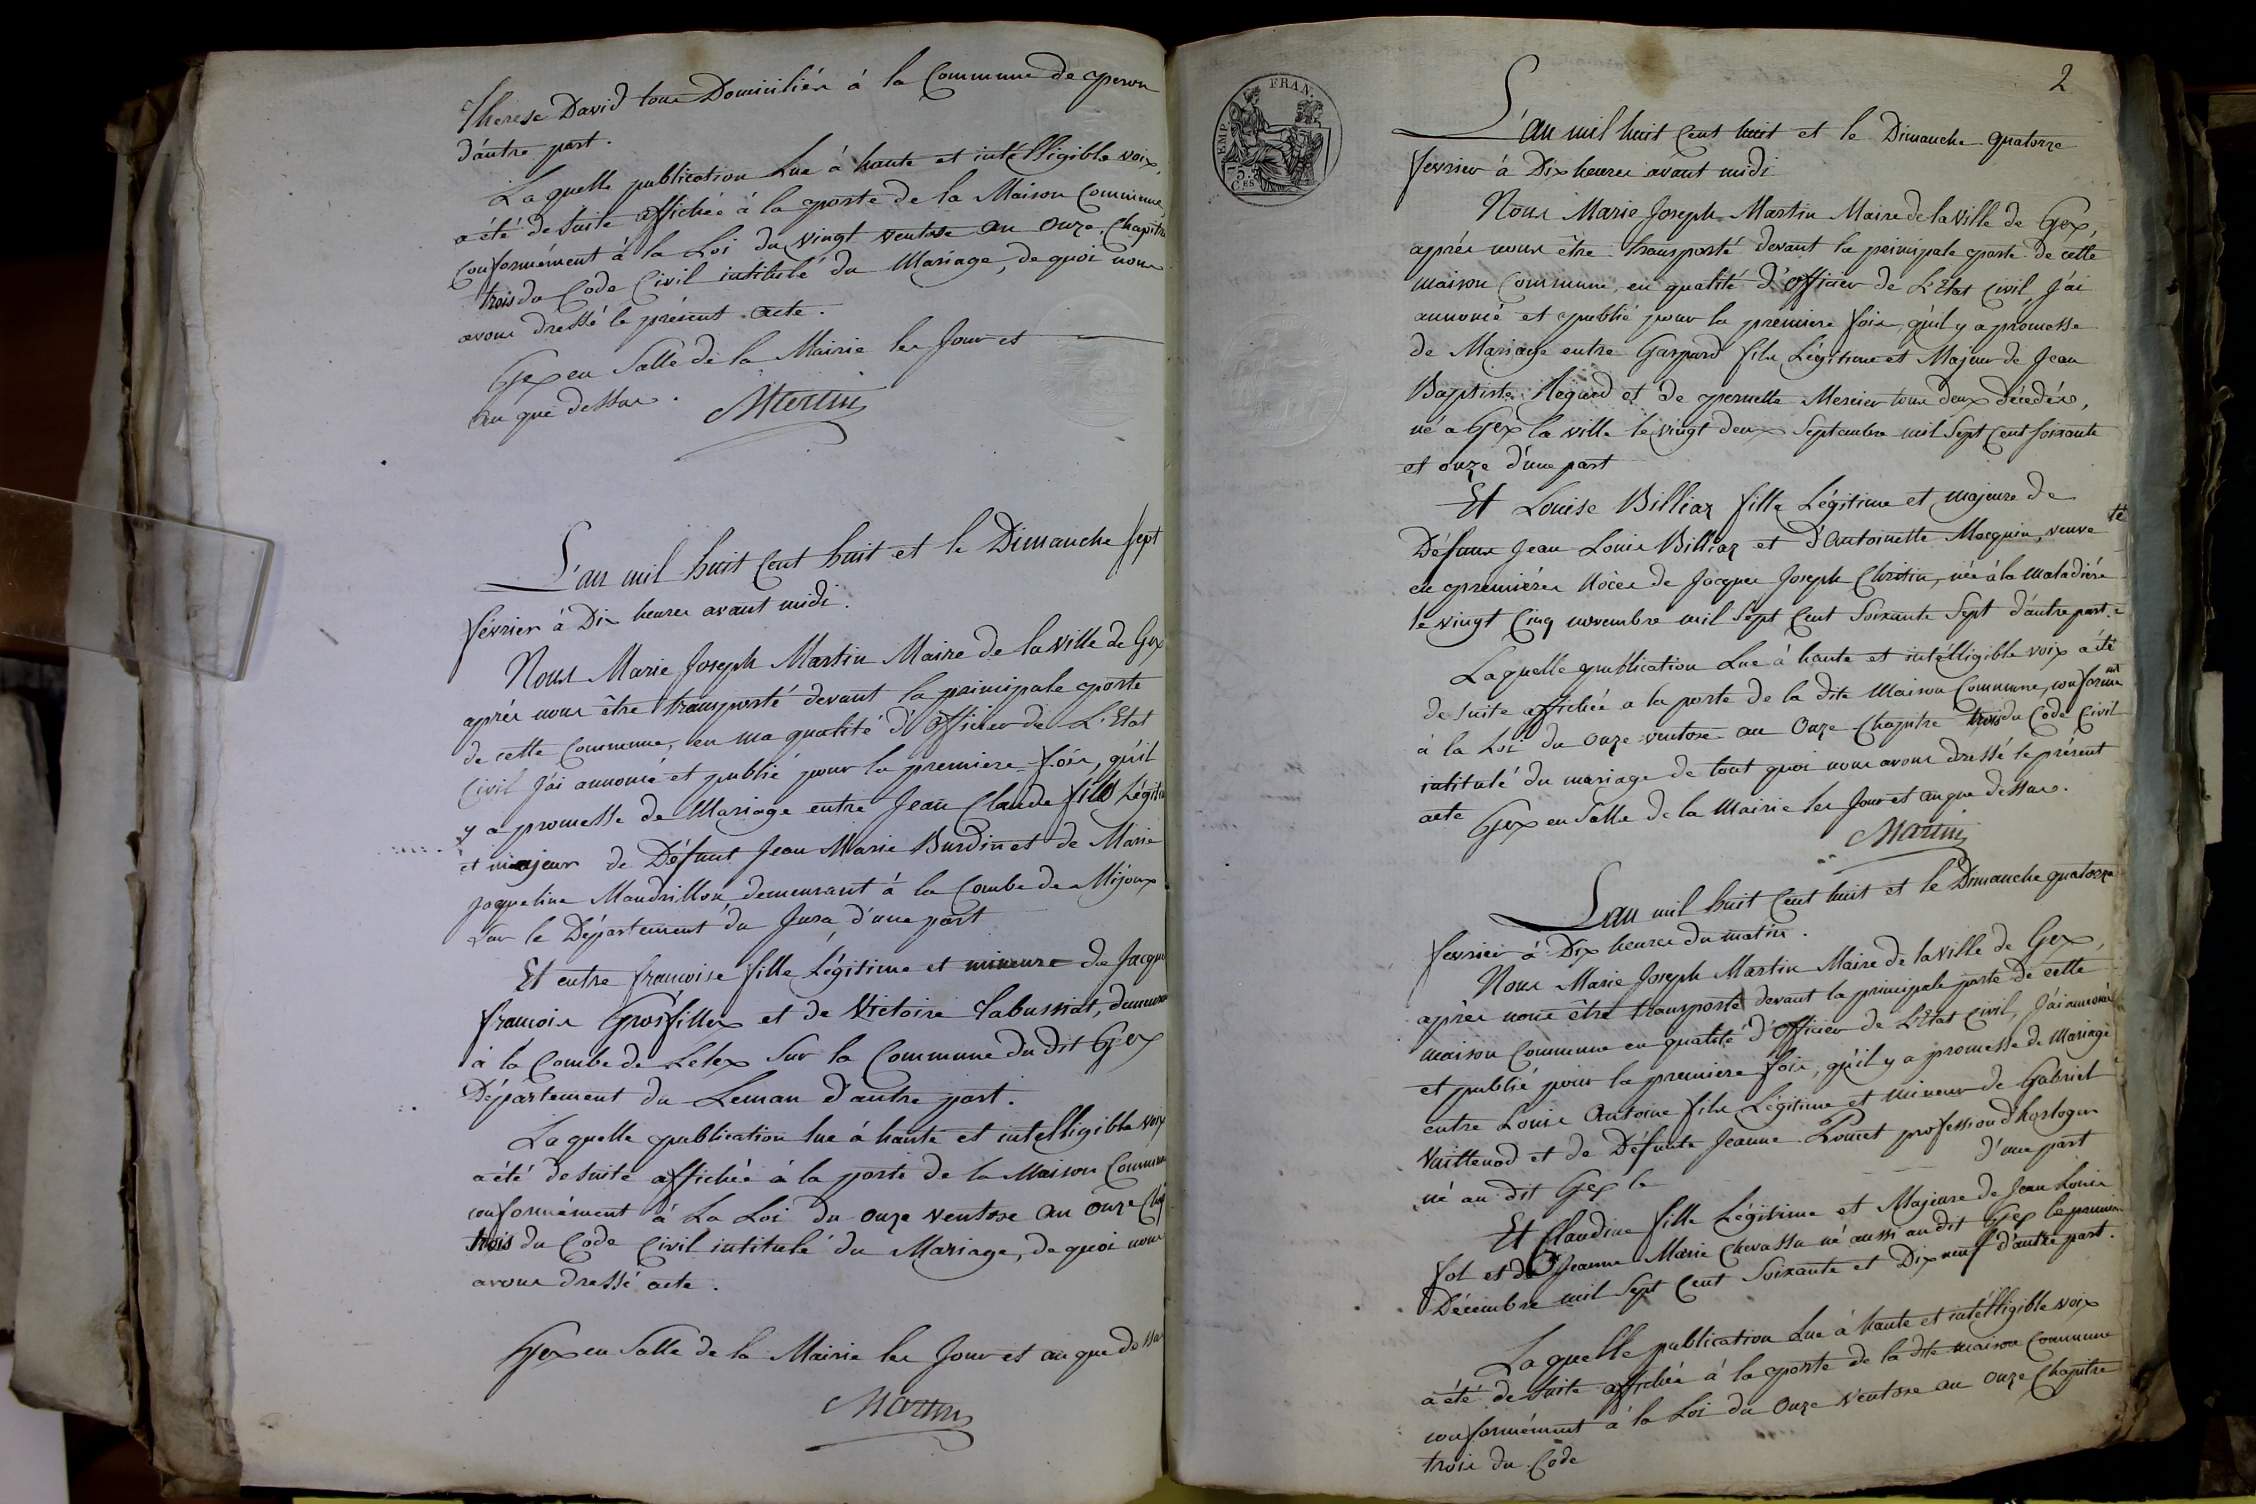 Therese David tous Domiciliés à la Commune de peron
d'autre part.
Laquelle publication Lue à haute et intélligible voix,
a été de suite affichée à la porte de la Maison Commune,
conformément à la Loi du vingt ventose an onze. Chapitre
trois du Code Civil intitulé du Mariage, de quoi nous
avons dressé le présent acte.
Gex en Salle de la Mairie les Jour et
an que dessus.
Martin
L'an mil huit Cent huit et le Dimanche sept
février à Dix heures avant midi.
Nous Marie Joseph Martin Maire de la Ville de Gex
après nous être transporté devant la principale porte
de cette Commune, en ma qualité d'Officier de L'Etat
Civil J'ai annoncé et publié pour la premiere fois, qu'il
y a promesse de Mariage entre Jean Claude fils Légitime
et majeur de Défunt Jean Marie Burdin et de Marie
Jaqueline Mandrillon demeurant à la Combe de Mijoux
Sur le Département du Jura, d'une part
Et entre francoise fille Légitime et mineure de Jacques
francois Grosfillex et de Victoire Labussiat, demeurant
à la Combe de Lelex Sur la Commune du dit Gex
Département du Leman d'autre part.
Laquelle publication lue à haute et intelligible voix
a été de suite affichée à la porte de la Maison Commune
conformément à La Loi du onze ventose an onze Chap
trois du Code Civil intitulé du Mariage, de quoi nous
avons dressé acte.
Gex en Salle de la Mairie les Jour et an que dessus
Martin
2
EMP. FRAN.
75.
C.ES
L'an mil huit Cent huit et le Dimanche quatorze
fevrier à Dix heures avant midi
Nous Marie Joseph Martin Maire de la Ville de Gex,
après nous être transporté devant la principale porte de cette
maison Commune, en qualité d'Officier de L'Etat Civil, J'ai
annoncé et publié pour la premiere fois, qu'il y a promesse
de Mariage entre Gaspard fils Légitime et Majeur de Jean
Baptiste Regard et de pernette Mercier tous deux décédés,
né a Gex la ville le vingt deux Septembre mil Sept Cent Soixante
et onze d'une part
Et Louise Billiaz fille Légitime et majeure de
Défunt Jean Louis Billiaz et d'Antoinette Macquin, veuve
en premières Nôces de Jacques Joseph Christin, née à la Maladiére
le vingt Cinq novembre mil Sept Cent Soixante Sept d'autre part.
Laquelle publication Lue à haute et intélligible voix a été
de suite affichée a la porte de la dite Maison Commune, conformémt
à la Loi du onze ventose an Onze Chapitre trois du Code Civil
intitulé du mariage de tout quoi nous avons dressé le présent
acte
Gex en Salle de la Mairie les Jour et an que dessus.
Martin
L'an mil huit Cent huit et le Dimanche quatorze
fevrier à Dix heures du matin.
Nous Marie Joseph Martin Maire de la Ville de Gex,
après nous être transporté devant la principale porte de cette
maison Commune en qualité d'Officier de L'Etat Civil, J'ai annoncé
et publié pour la premiere fois, qu'il y a promesse de Mariage
entre Louis Antoine fils Légitime et mineur de Gabriel
Vaittenod et de Défunte Jeanne Poncet profession d'horloger
né au dit Gex le d'une part
Et Claudine fille Légitime et Majeure de Jean Louis
fol et de Jeanne Marie Chevassu né aussi au dit Gex le premier
Décembre mil Sept Cent Soixante et Dix neuf d'autre part.
Laquelle publication Lue à haute et intélligible voix
a été de suite affichée à la porte de la dite maison Commune
conformément à la Loi du Onze Ventose an onze Chapitre
trois du Code